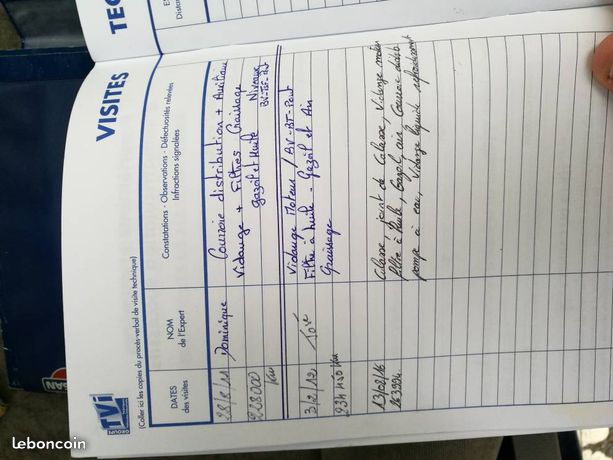 TEC
VISITES
TVI
GROUPE
(Coller ici les copies du procès-verbal de visite technique)
DATES
des visites
NOM
de l'Expert
Constatations - Observations - Défectuosités relevées
Infractions signalées
28/8/11 Dominique Courroie distribution + Auxiliaire
Vidange + Filtres Graissage
228000 gazoil et huile Niveaux
Km BV-BT-Pont
Vidange Moteur / BV-BT-Pont
3/2/12 Filtre à huile - Gazoil et Air
234 450 Km Graissage
13/02/16 Culasse, joint de Culasse, Vidange moteur
263994 filtre à huile, Gazoil, air, Courroie distrib
pompe à eau, Vidange liquide refroidissement
leboncoin